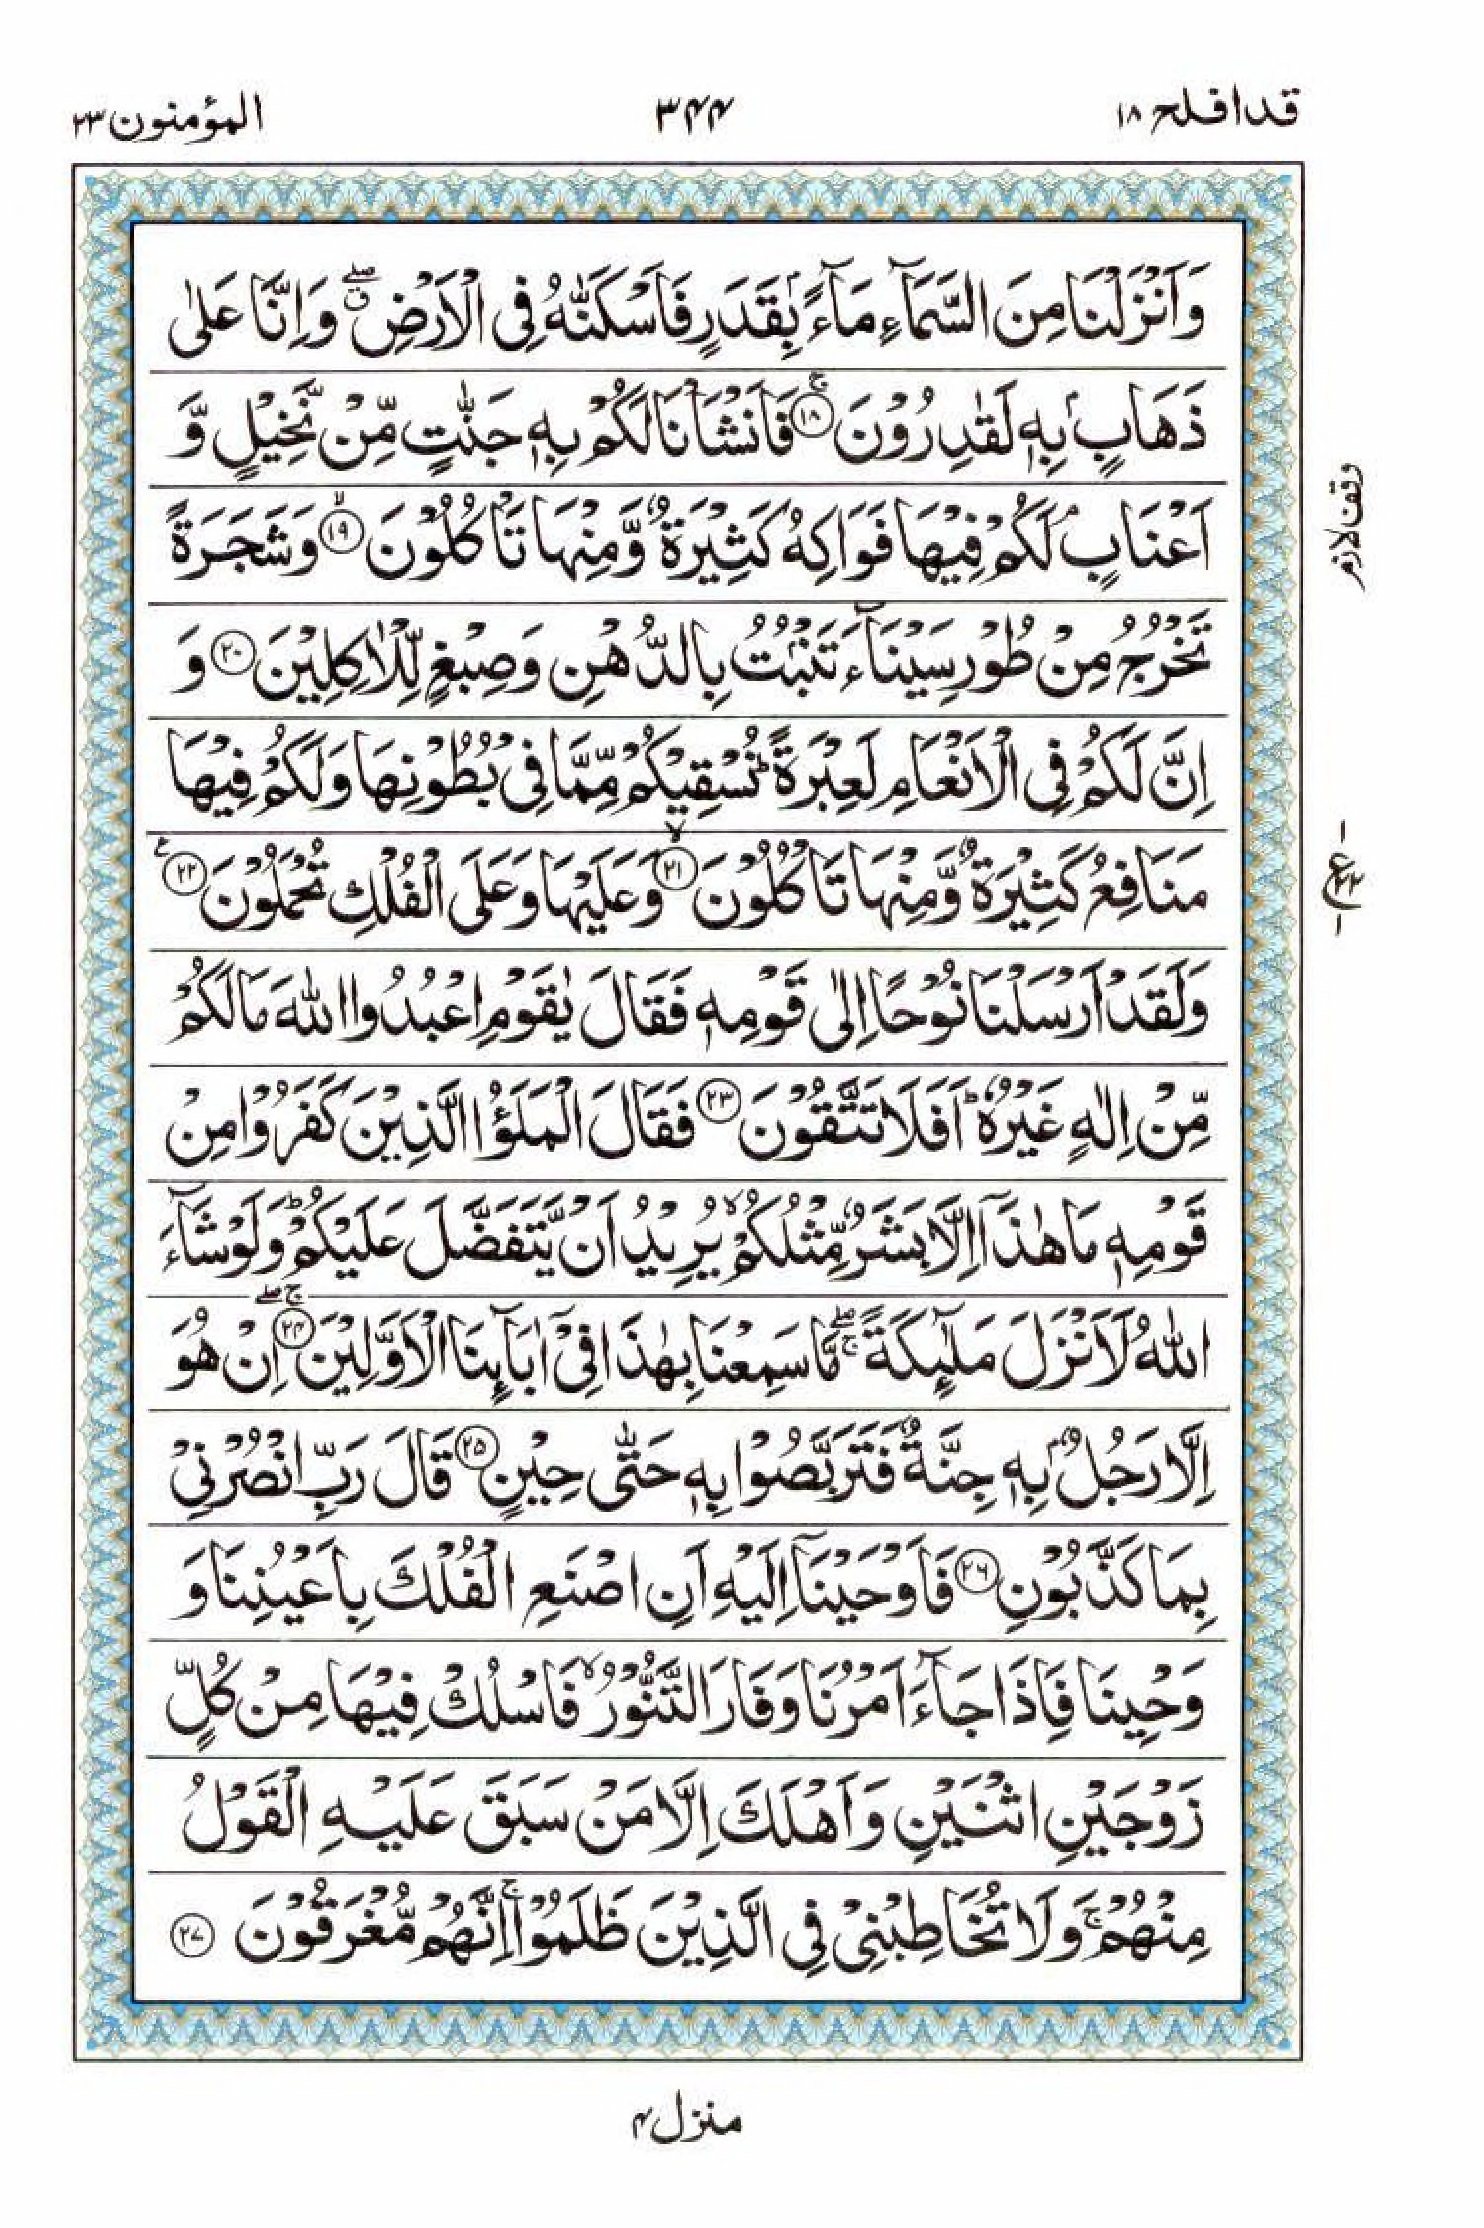 قد افلح ١٨
٣٤٤
المؤمنون ٢٣
وَاَنْزَلْنَا مِنَ السَّمَآءِ مَآءًۢ بِقَدَرٍ فَاَسْكَنّٰهُ فِی الْاَرْضِ ۖۗ وَاِنَّا عَلٰی
ذَهَابٍۭ بِهٖ لَقٰدِرُوْنَ ۚ﴿۱۸﴾ فَاَنْشَاْنَا لَكُمْ بِهٖ جَنّٰتٍ مِّنْ نَّخِیْلٍ وَّ
اَعْنَابٍ ۘ لَكُمْ فِیْهَا فَوَاكِهُ كَثِیْرَةٌ وَّمِنْهَا تَاْكُلُوْنَ ۙ﴿۱۹﴾ وَشَجَرَةً
تَخْرُجُ مِنْ طُوْرِ سَیْنَآءَ تَنْۢبُتُ بِالدُّهْنِ وَصِبْغٍ لِّلْاٰكِلِیْنَ ﴿۲۰﴾ وَ
اِنَّ لَكُمْ فِی الْاَنْعَامِ لَعِبْرَةً ؕ نُسْقِیْكُمْ مِّمَّا فِیْ بُطُوْنِهَا وَلَكُمْ فِیْهَا
مَنَافِعُ كَثِیْرَةٌ وَّمِنْهَا تَاْكُلُوْنَ ۙ﴿۲۱﴾ وَعَلَیْهَا وَعَلَی الْفُلْكِ تُحْمَلُوْنَ ﴿۲۲﴾ ع
وَلَقَدْ اَرْسَلْنَا نُوْحًا اِلٰی قَوْمِهٖ فَقَالَ یٰقَوْمِ اعْبُدُوا اللّٰهَ مَا لَكُمْ
مِّنْ اِلٰهٍ غَیْرُهٗ ؕ اَفَلَا تَتَّقُوْنَ ﴿۲۳﴾ فَقَالَ الْمَلَؤُا الَّذِیْنَ كَفَرُوْا مِنْ
قَوْمِهٖ مَا هٰذَآ اِلَّا بَشَرٌ مِّثْلُكُمْ ۙ یُرِیْدُ اَنْ یَّتَفَضَّلَ عَلَیْكُمْ ؕ وَلَوْ شَآءَ
اللّٰهُ لَاَنْزَلَ مَلٰٓئِكَةً ۚۖ مَّا سَمِعْنَا بِهٰذَا فِیْۤ اٰبَآئِنَا الْاَوَّلِیْنَ ۚۖ﴿۲۴﴾ اِنْ هُوَ
اِلَّا رَجُلٌۢ بِهٖ جِنَّةٌ فَتَرَبَّصُوْا بِهٖ حَتّٰی حِیْنٍ ﴿۲۵﴾ قَالَ رَبِّ انْصُرْنِیْ
بِمَا كَذَّبُوْنِ ﴿۲۶﴾ فَاَوْحَیْنَآ اِلَیْهِ اَنِ اصْنَعِ الْفُلْكَ بِاَعْیُنِنَا وَ
وَحْیِنَا فَاِذَا جَآءَ اَمْرُنَا وَفَارَ التَّنُّوْرُ ۙ فَاسْلُكْ فِیْهَا مِنْ كُلٍّ
زَوْجَیْنِ اثْنَیْنِ وَاَهْلَكَ اِلَّا مَنْ سَبَقَ عَلَیْهِ الْقَوْلُ
مِنْهُمْ ۚ وَلَا تُخَاطِبْنِیْ فِی الَّذِیْنَ ظَلَمُوْا ۚ اِنَّهُمْ مُّغْرَقُوْنَ ﴿۲۷﴾
وقف لازم
منزل ٤